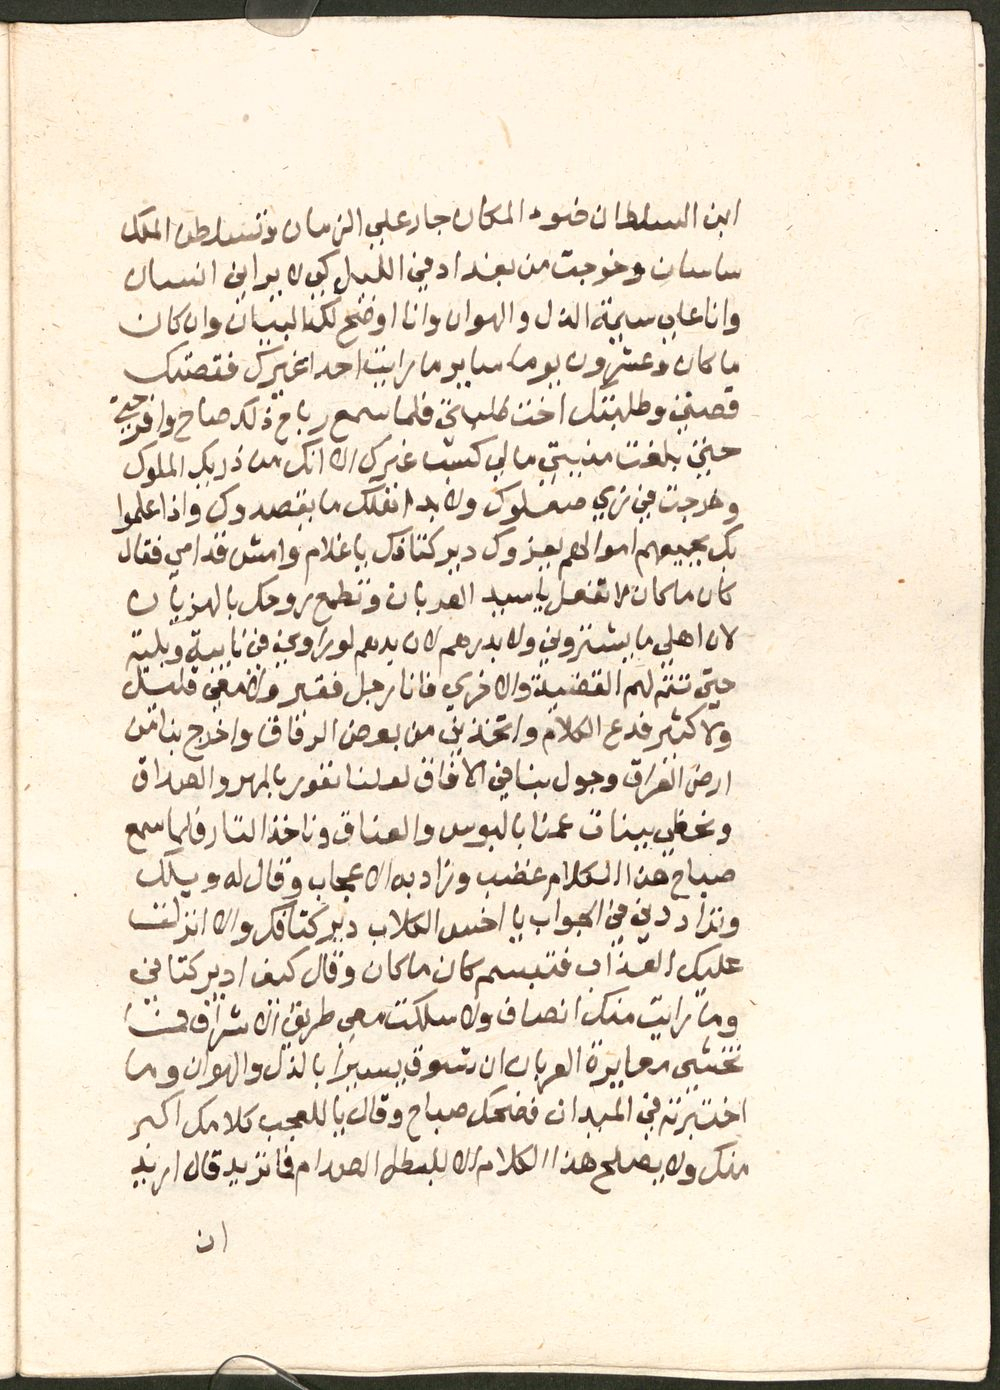 ابن السلطان ضوء المكان جار علي الزمان وتسلطن الملك
ساسان وخرجت من بغداد في الليل كي لا يراني انسان
وانا علي سيمة الذل والهوان وانا اوضح لك البيان وان كان
ما كان وعشرون يوما ساير ما رايت احدا غيرك فقصتك
قصتي وطلبتك اخت طلبتي فلما سمع رباح ذلك صاح وافرحتي
حيني بلغت منيتي ما لي كسب غيرك الا انك من ذريك الملوك
وخرجت في زي صعلوك ولا بد اهلك ما يقصدوك واذا علموا
بك بجميعهم اموالهم يفدوك دير كتافك يا غلام وامش قدامي فقال
كان ماكان لا تفعل يا سيد العربان وتطمع روحك بالهزيان
لان اهلي ما يشتروني ولا بدرهم لان بدهم لو راوني في نايبة وبلية
حتي تتم لهم القضية والاخري فانا رجل فقير ولا معي قليل
ولا كثير فدع الكلام واتخذني من بعض الرفاق واخرج بنا من
ارض العراق وجول بنا في الافاق لعلنا نفوز بالمهر والصداق
ونحظي ببنات عمنا بالبوس والعناق وناخذ التار فلما سمع
صباح هذا الكلام غضب وزاد به الاعجاب وقال له ويلك
وتراددني في الجواب يا اخس الكلاب دير كتافك والا انزلت
عليك العذاب فتبسم كان ماكان وقال كيف ادير كتافي
وما رايت منك انصاف ولا سلكت معي طريق الاشراف فما
تخشي معايرة العربان ان تسوق يسيرا بالذل والهوان وما
اختبرته في الميدان فضحك صباح وقال يا للعجب كلامك اكبر
منك ولا يصلح هذا الكلام الا للبطل الصدام فما تريد قال اريد
ان